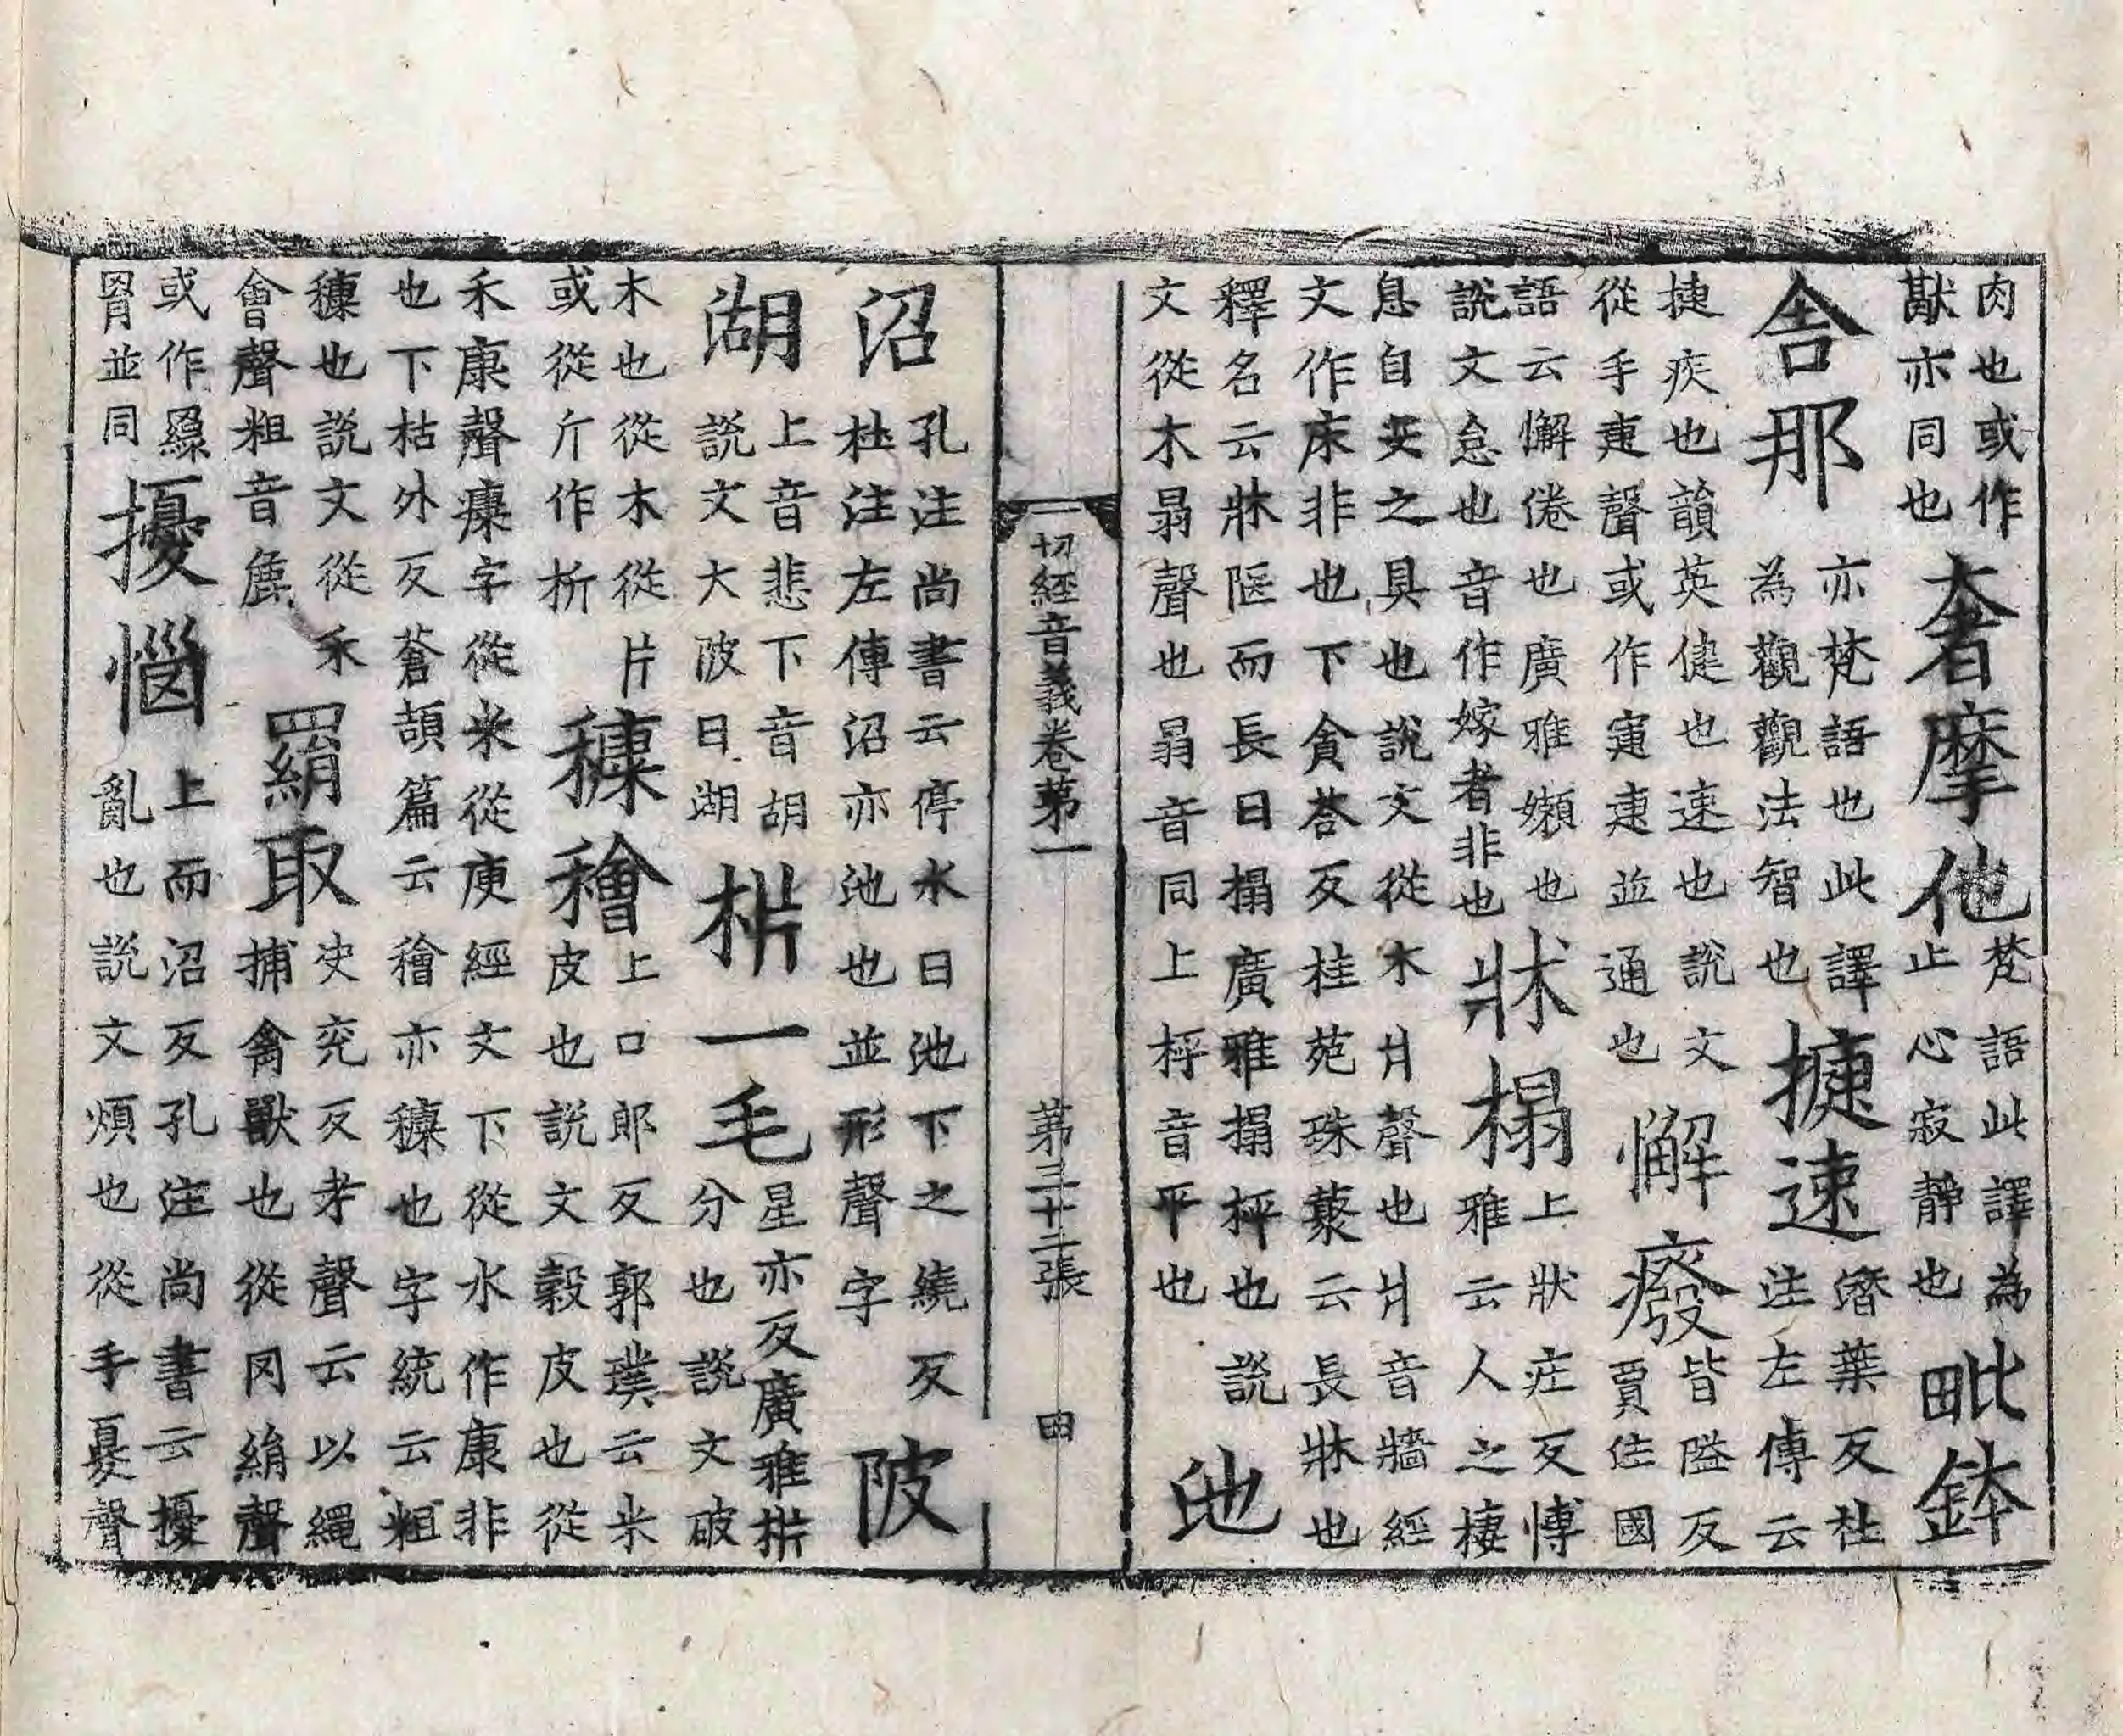 肉也或作猒亦同也奢摩他梵語此譯為止心寂靜也毗鉢
舍那亦梵語也此譯為觀觀法智也捷速潛葉反杜注左傳云
捷疾也韻英健也速也說文從手疌聲或作寁疌並通也懈癈皆隘反賈住國
語云懈倦也廣雅嬾也說文怠也音作嫁者非也牀榻上狀庄反博雅云人之棲
息自安之具也說文從木爿聲也爿音牆經文作床非也下貪荅反桂苑珠藂云長牀也
釋名云牀陿而長曰搨廣雅搨枰也說文從木𦐇聲也𦐇音同上枰音平也池
一切經音義卷第一 第三十二張 田
沼孔注尚書云停水曰池下之繞反杜注左傳沼亦池也並形聲字陂
湖上音悲下音胡說文大陂曰湖㭊一毛星亦反廣雅㭊分也說文破
木也從木從片或從斤作析穅𥢶上口郎反郭璞云米皮也說文穀皮也從
禾康聲穅字從米從庚經文下從水作康非也下枯外反蒼頡篇云𥢶亦穅也字統云粗
穅也說文從禾會聲粗音麁羂取決兗反考聲云以繩捕禽獸也從网絹聲
或作罥並同擾惱上而沼反孔注尚書云擾亂也說文煩也從手憂聲